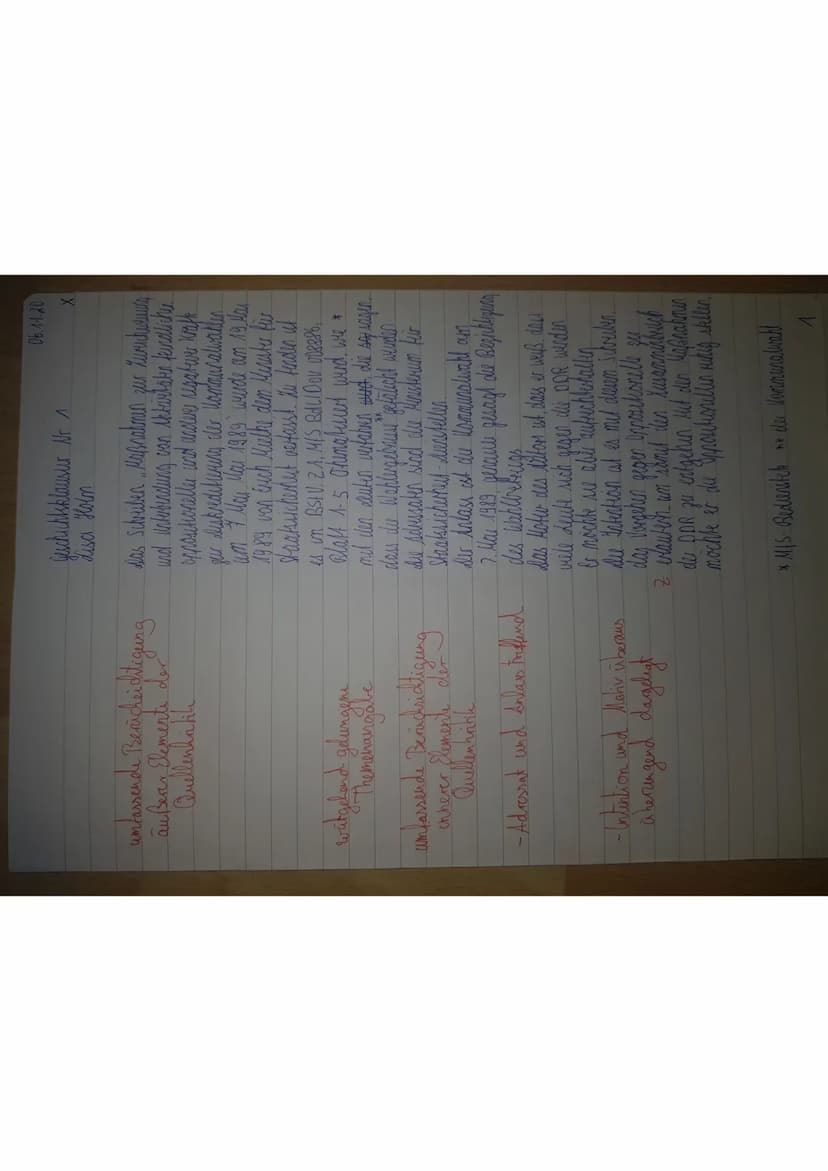 06.11.20
Geschichtsklausur Nr. 1
Lisa
x
Das Schreiben „Maßnahmen zur Zurückweisung
und Verhinderung von Aktivitäten feindlicher,
oppositioneller und anderer negativer Kräfte
zur Diskreditierung der Kommunalwahlen
am 7. Mai 1989" wurde am 19. Mai
1989 von Erich Mielke dem Minister für
Staatssicherheit verfasst. Zu finden ist
es in BStU Z.1. MfS BdL/Dok 008836,
Blatt 1-5. Thematisiert wird, wie *
mit den Leuten verfahren die sagen,
dass die Wahlergebnisse ** gefälscht wurden.
Die Adressaten sind die Ministerium für
Staatssicherheit-Dienststellen.
Der Anlass ist die Kommunalwahl am
7. Mai 1989 genauer gesagt die Bezichtigung
des Wahlbetrugs.
Das Motiv des Autors ist das er weiß, dass
viele Leute sich gegen die DDR wenden
Er möchte sie also aufrechterhalten.
Die Intention ist es mit diesem Schreiben,
das Vorgehen gegen Oppositionelle zu
erläutern um somit den Zusammenbruch
der DDR zu entgehen. Mit den Maßnahmen
möchte er die Oppositionellen ruhig stellen.
* MfS-Bedienstete ** der Kommunalwahl
1
umfassende Berücksichtigung
äußerer Elemente der
Quellenkritik
weitgehend gelungene
Themenangabe
umfassende Berücksichtigung
innerer Elemente der
Quellenkritik
- Adressat und Anlass treffend
- Intention und Motiv überaus
überzeugend dargelegt
Z